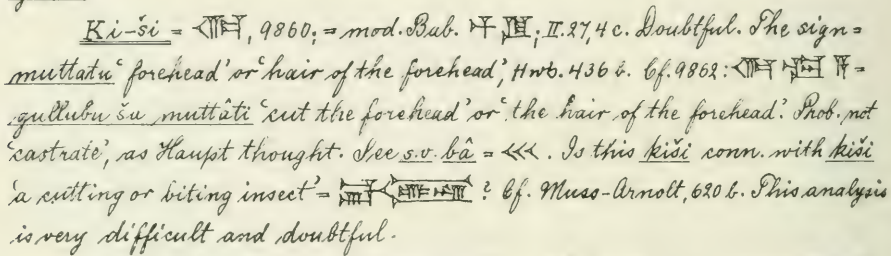 Ki-ši = 9860; = mod. Bab. ; II. 27, 4 c. Doubtful. The sign =
muttatu ‘forehead’ or ‘hair of the forehead’, Hwb. 436 b. Cf. 9862: =
gullubu ša muttâti ‘cut the forehead’ or ‘the hair of the forehead’. Prob. not
‘castrate’, as Haupt thought. See s.v. bâ = 𒌍. Is this kiši conn. with kiši
‘a cutting or biting insect’ = ? Cf. Muss-Arnolt, 620 b. This analysis
is very difficult and doubtful.